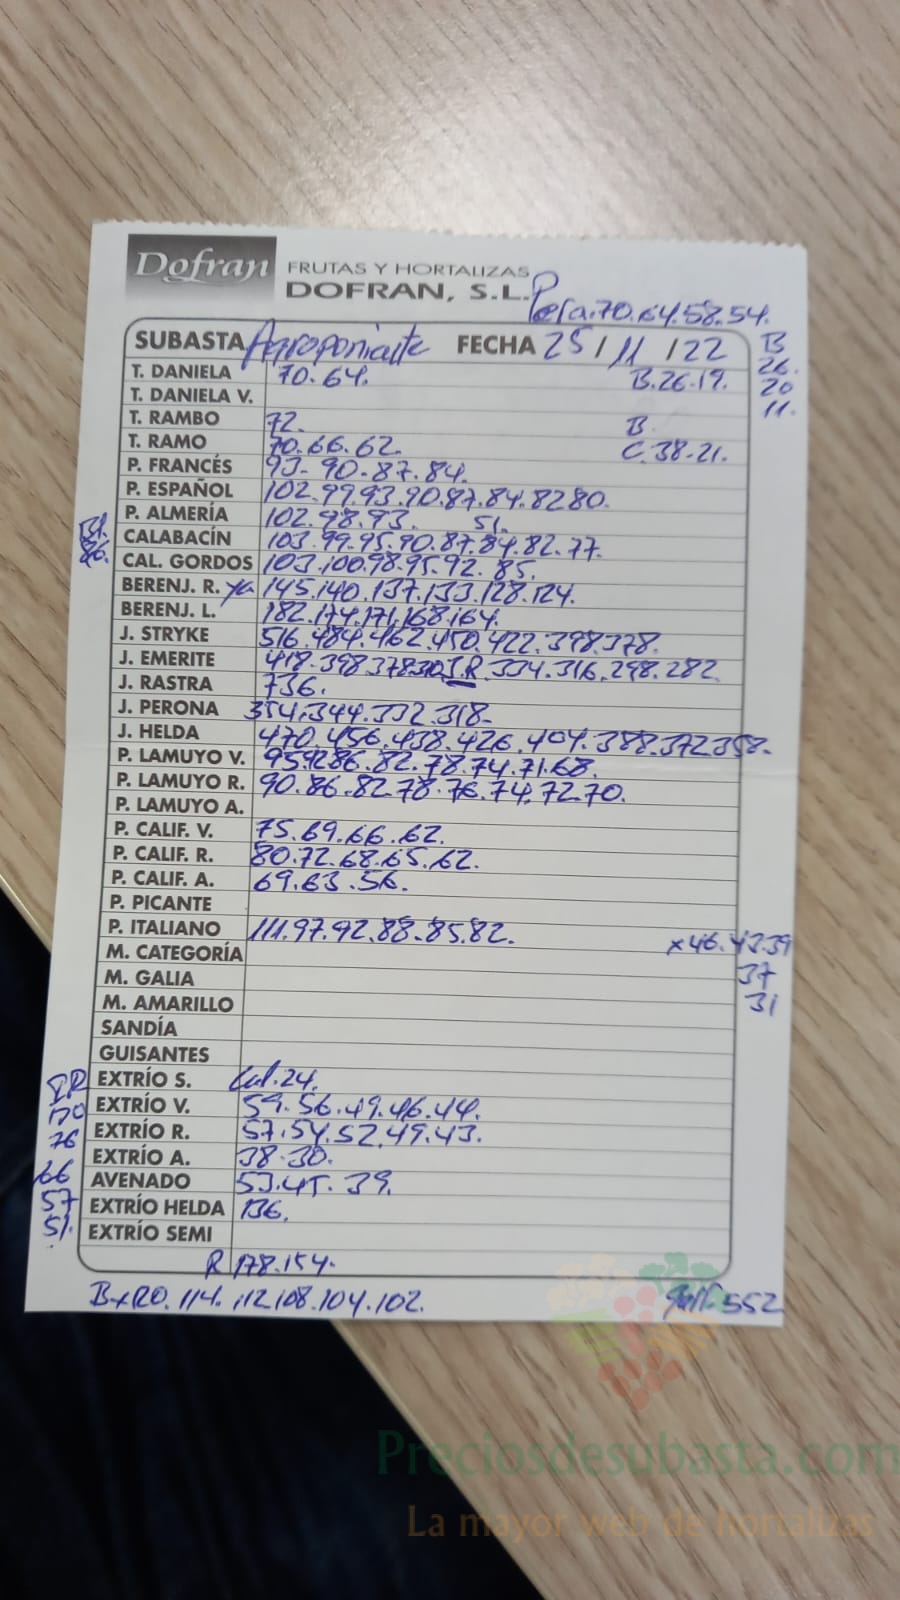 Dofran FRUTAS Y HORTALIZAS
DOFRAN, S.L.
Pera.70.64.58.54.
SUBASTA Agroponiente FECHA 25/11/22 B
26.
T. DANIELA 70.64. B.26.19. 20
T. DANIELA V. 11.
T. RAMBO 72. B.
T. RAMO 70.66.62. C.38-21.
P. FRANCÉS 93-90.87.84.
P. ESPAÑOL 102.99.93.90.87.84.82 80.
P. ALMERÍA 102.98.93. 51.
CALABACÍN 103.99.95.90.87.84.82.77.
CAL. GORDOS 103.100.98.95.92.85.
BERENJ. R. 145.140.137.133.128.124.
BERENJ. L. 182.174.171.168.164.
J. STRYKE 516.484.462.450.422.398.378.
J. EMERITE 418.398 378 J.R. 334.316.298.282.
J. RASTRA 736.
J. PERONA 354.344.332.318-
J. HELDA 470.456.438.426.404.388.372 358-
P. LAMUYO V. 86.82.78.74.71.68.
P. LAMUYO R. 90.86.82.78.76.74.72.70.
P. LAMUYO A.
P. CALIF. V. 75.69.66.62.
P. CALIF. R. 80.72.68.65.62.
P. CALIF. A. 69.63.56.
P. PICANTE
P. ITALIANO 111.97.92.88.85.82. x46.43.39
M. CATEGORÍA 37
M. GALIA 31
M. AMARILLO
SANDÍA
GUISANTES
EXTRÍO S. Cal.24.
EXTRÍO V. 59.56.49.46.44.
EXTRÍO R. 57.54.52.49.43.
76
EXTRÍO A. 38-30.
66 AVENADO 53.45.39.
57 EXTRÍO HELDA 136.
51. EXTRÍO SEMI
R 178.154.
114.112.108.104.102. 552
Preciosdesubasta.com
La mayor web de hortalizas